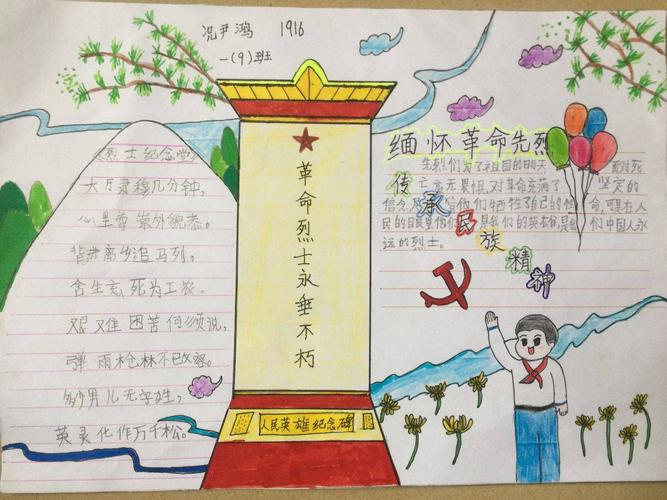 况尹鸿 1916
一(9)班
《烈士纪念堂》
大厅肃穆几分钟，
心里尊崇外貌恭。
背井离乡追马列，
舍生忘死为工农。
艰难困苦何须说，
弹雨枪林不改容。
多少男儿无字姓，
英灵化作万千松。
革命烈士永垂不朽
人民英雄纪念碑
缅怀革命先烈
先烈们为了祖国的明天 面对死
亡毫无畏惧，对革命充满了 坚定的
信念 他们牺牲了自己的 命，可是在人
民的目 是我们的英雄，是 们中国人永
远的烈士。
传承民族精神